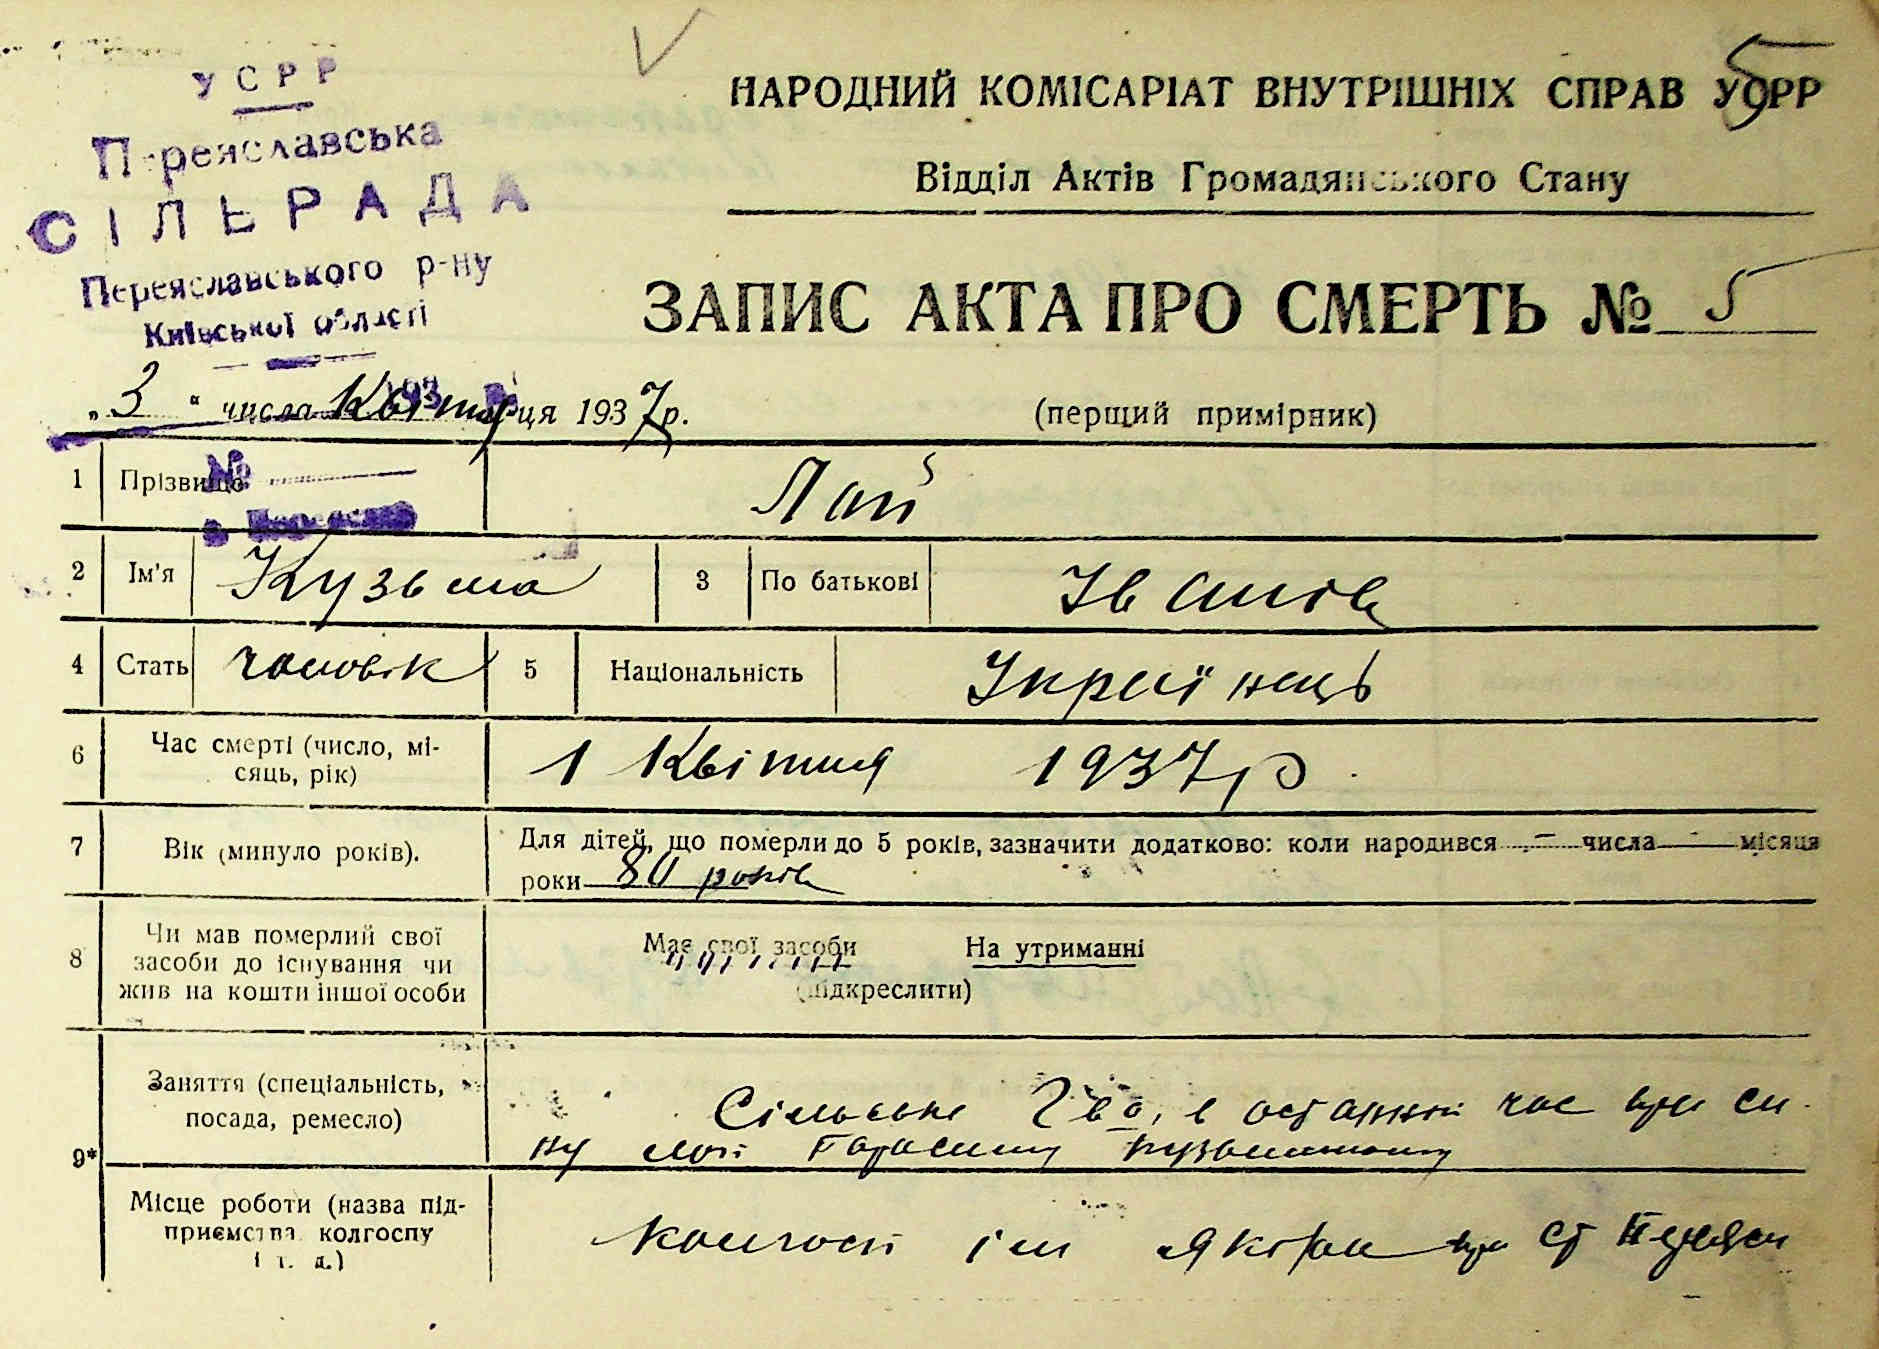 УСРР
Переяславська
СІЛЬРАДА
Переяславського р-ну
Київської області
НАРОДНИЙ КОМІСАРІАТ ВНУТРІШНІХ СПРАВ УСРР
Відділ Актів Громадянського Стану
ЗАПИС АКТА ПРО СМЕРТЬ № 5
„3“ числа Квітня місяця 1937 р.
(перщий примірник)
1 Прізвище Лай
№
2 Ім'я Кузьма 3 По батькові Іванов
4 Стать чоловік 5 Національність Українець
6 Час смерті (число, мі-
сяць, рік) 1 Квітня 1937 р.
7 Вік (минуло років). Для дітей, що померли до 5 років, зазначити додатково: коли народився - числа - місяця
роки 80 років
8 Чи мав померлий свої
засоби до існування чи
жив на кошти іншої особи
Має свої засоби На утриманні
(підкреслити)
9* Заняття (спеціальність,
посада, ремесло)
Сільське г-во, в останній час при си-
ну Лай Гарасиму Кузьмичу
Місце роботи (назва під-
приємства колгоспу
і т. д.)
колгосп ім при ст